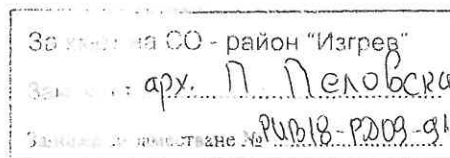 За кмет на СО - район "Изгрев"
арх. П Пеловски
Заповед за заместване № РИВ18-РД09-91